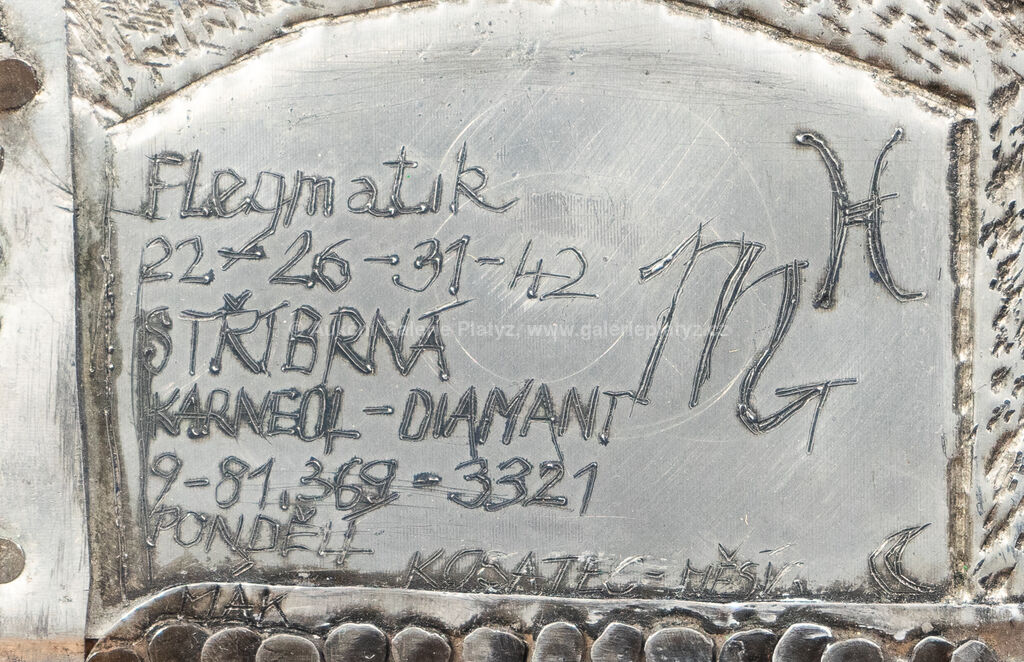 Flegmatik
22-26-31-42
STŘÍBRNÁ
KARNEOL-DIAMANT
9-81.369-3321
PONDĚLÍ
KOSATEC-MĚSÍ
MÁK
Galerie Platýz, www.galerieplatyz.cz